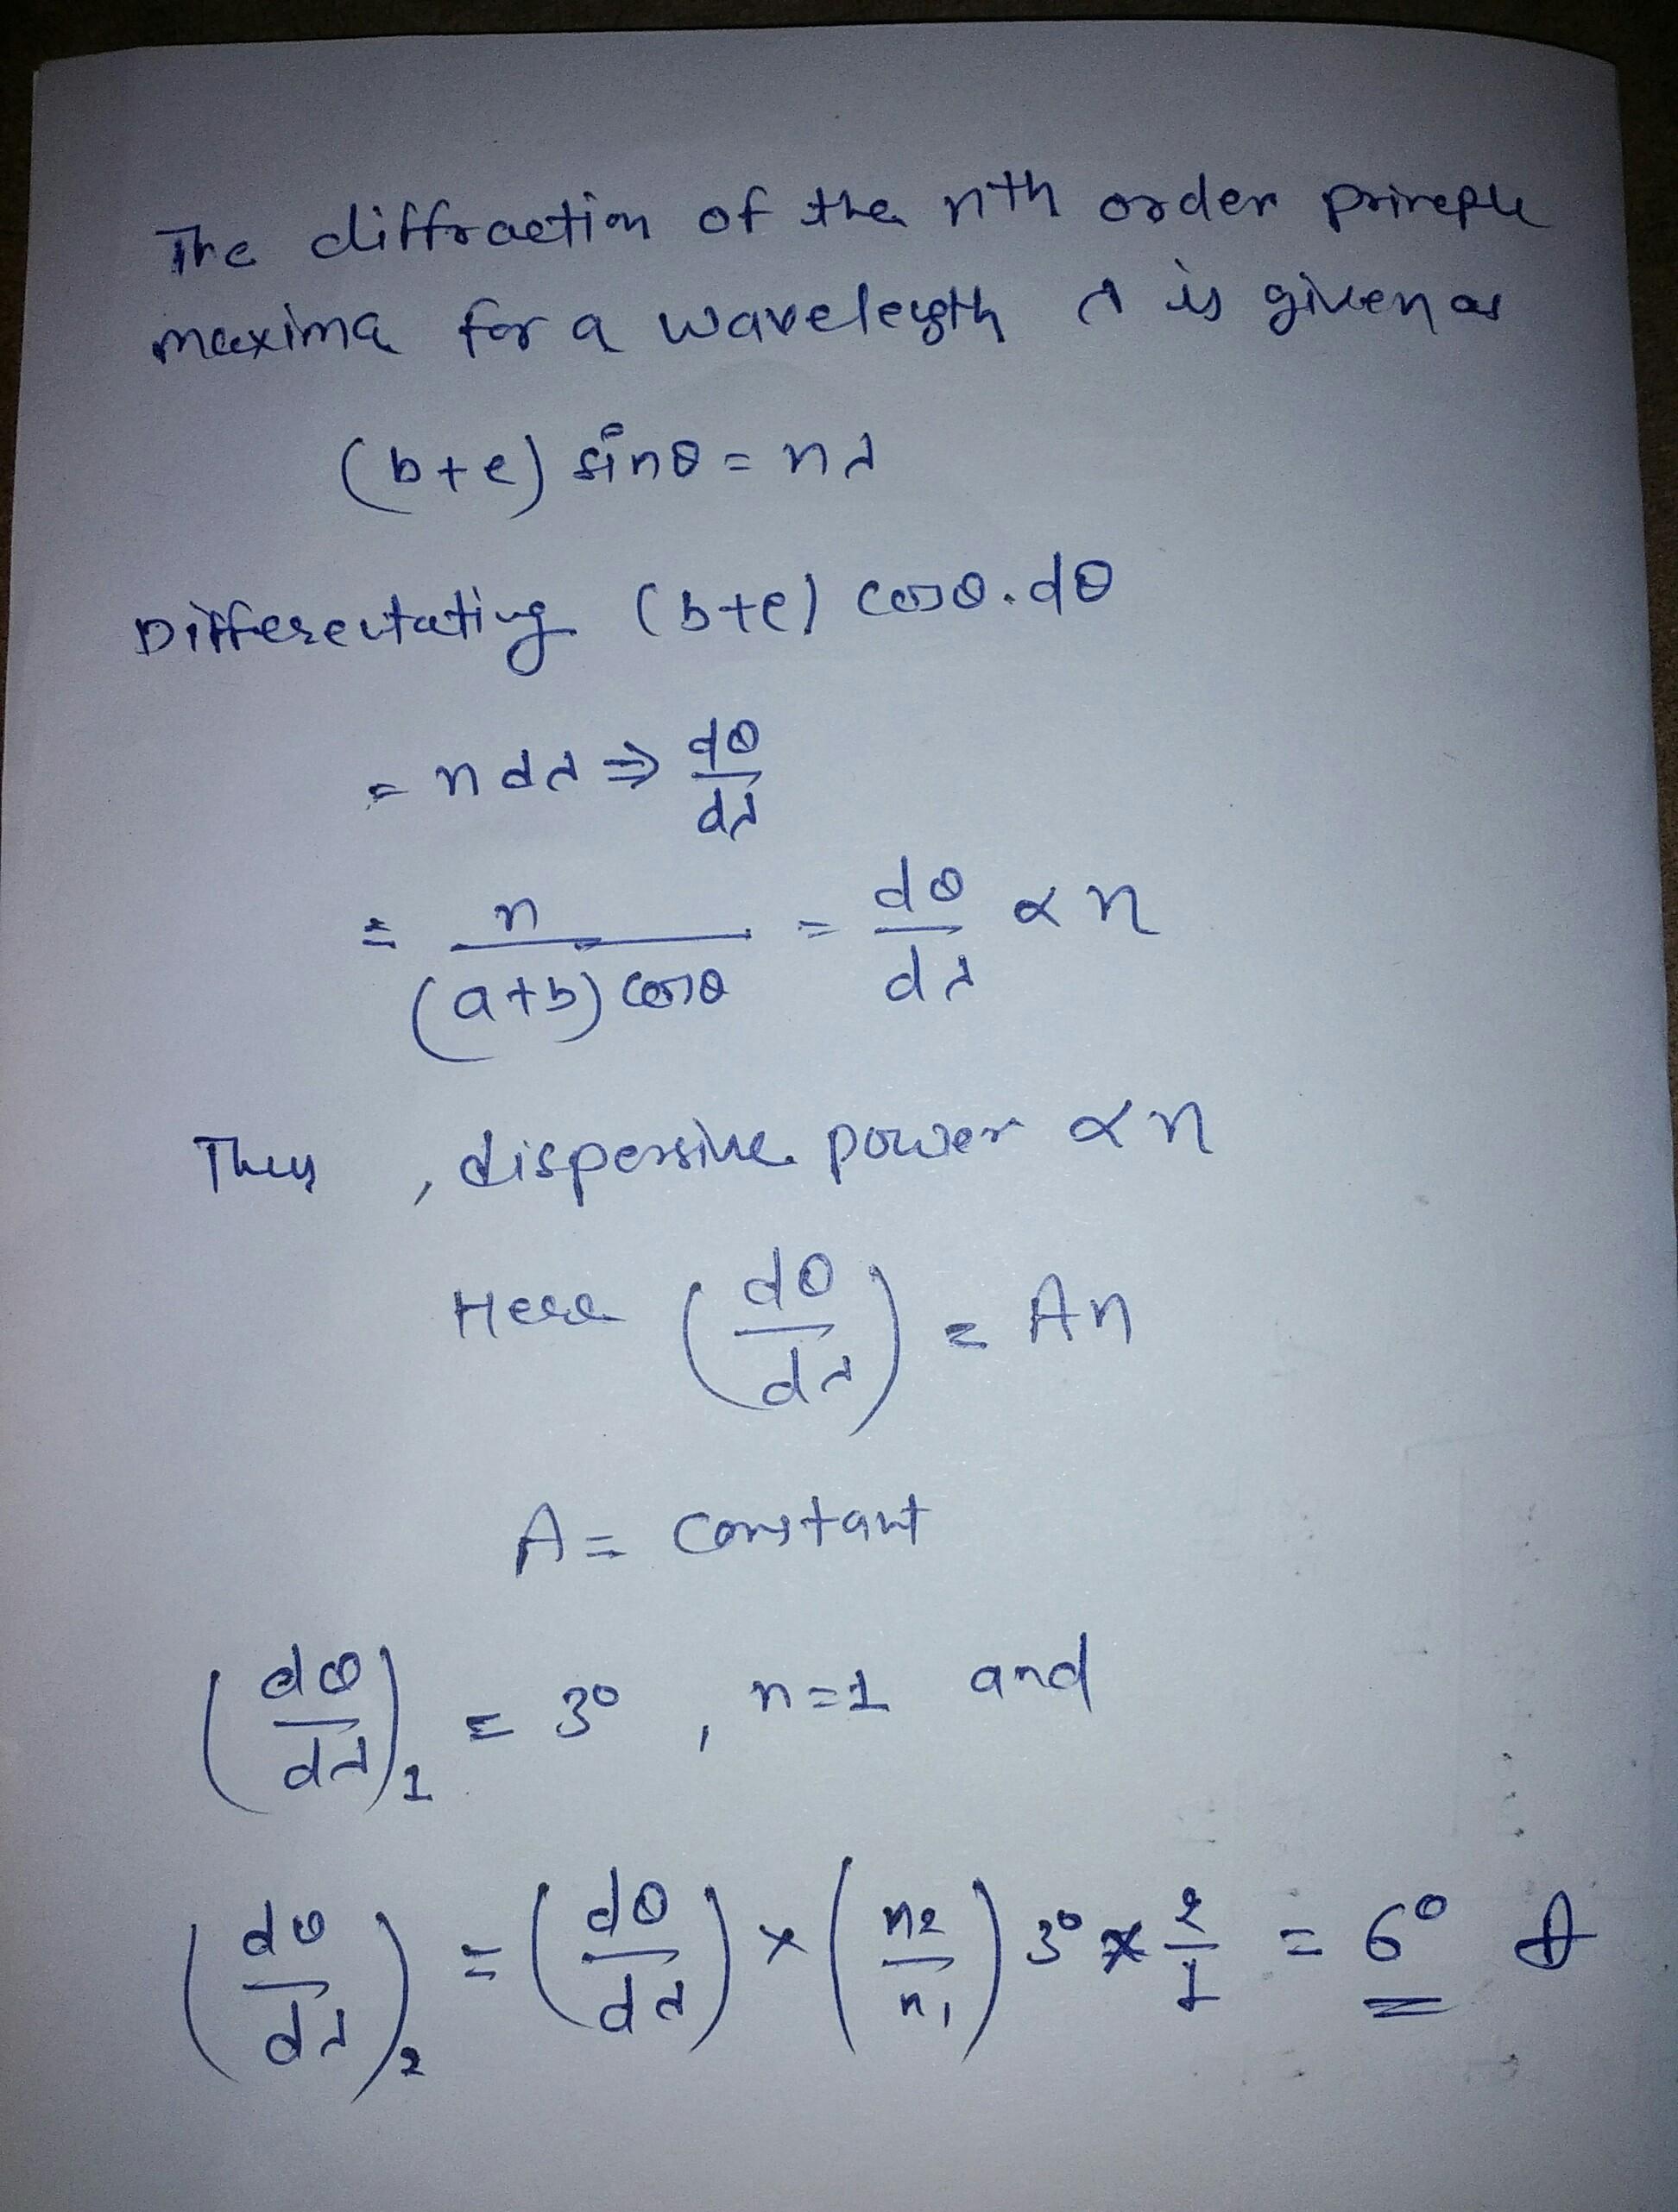 The diffraction of the nth order
maxima for a wavelength λ is given as
(b+e) sinθ = nλ
Differentating (b+e) cosθ.dθ
= ndλ ⇒ dθ/dλ
= n/(a+b) cosθ = dθ/dλ ∝ n
Thus, dispersive power ∝ n
Here (dθ/dλ) = An
A = constant
(dθ/dλ)₁ = 3°, n=1 and
(dθ/dλ)₂ = (dθ/dλ) × (n₂/n₁) 3° × 2/1 = 6°